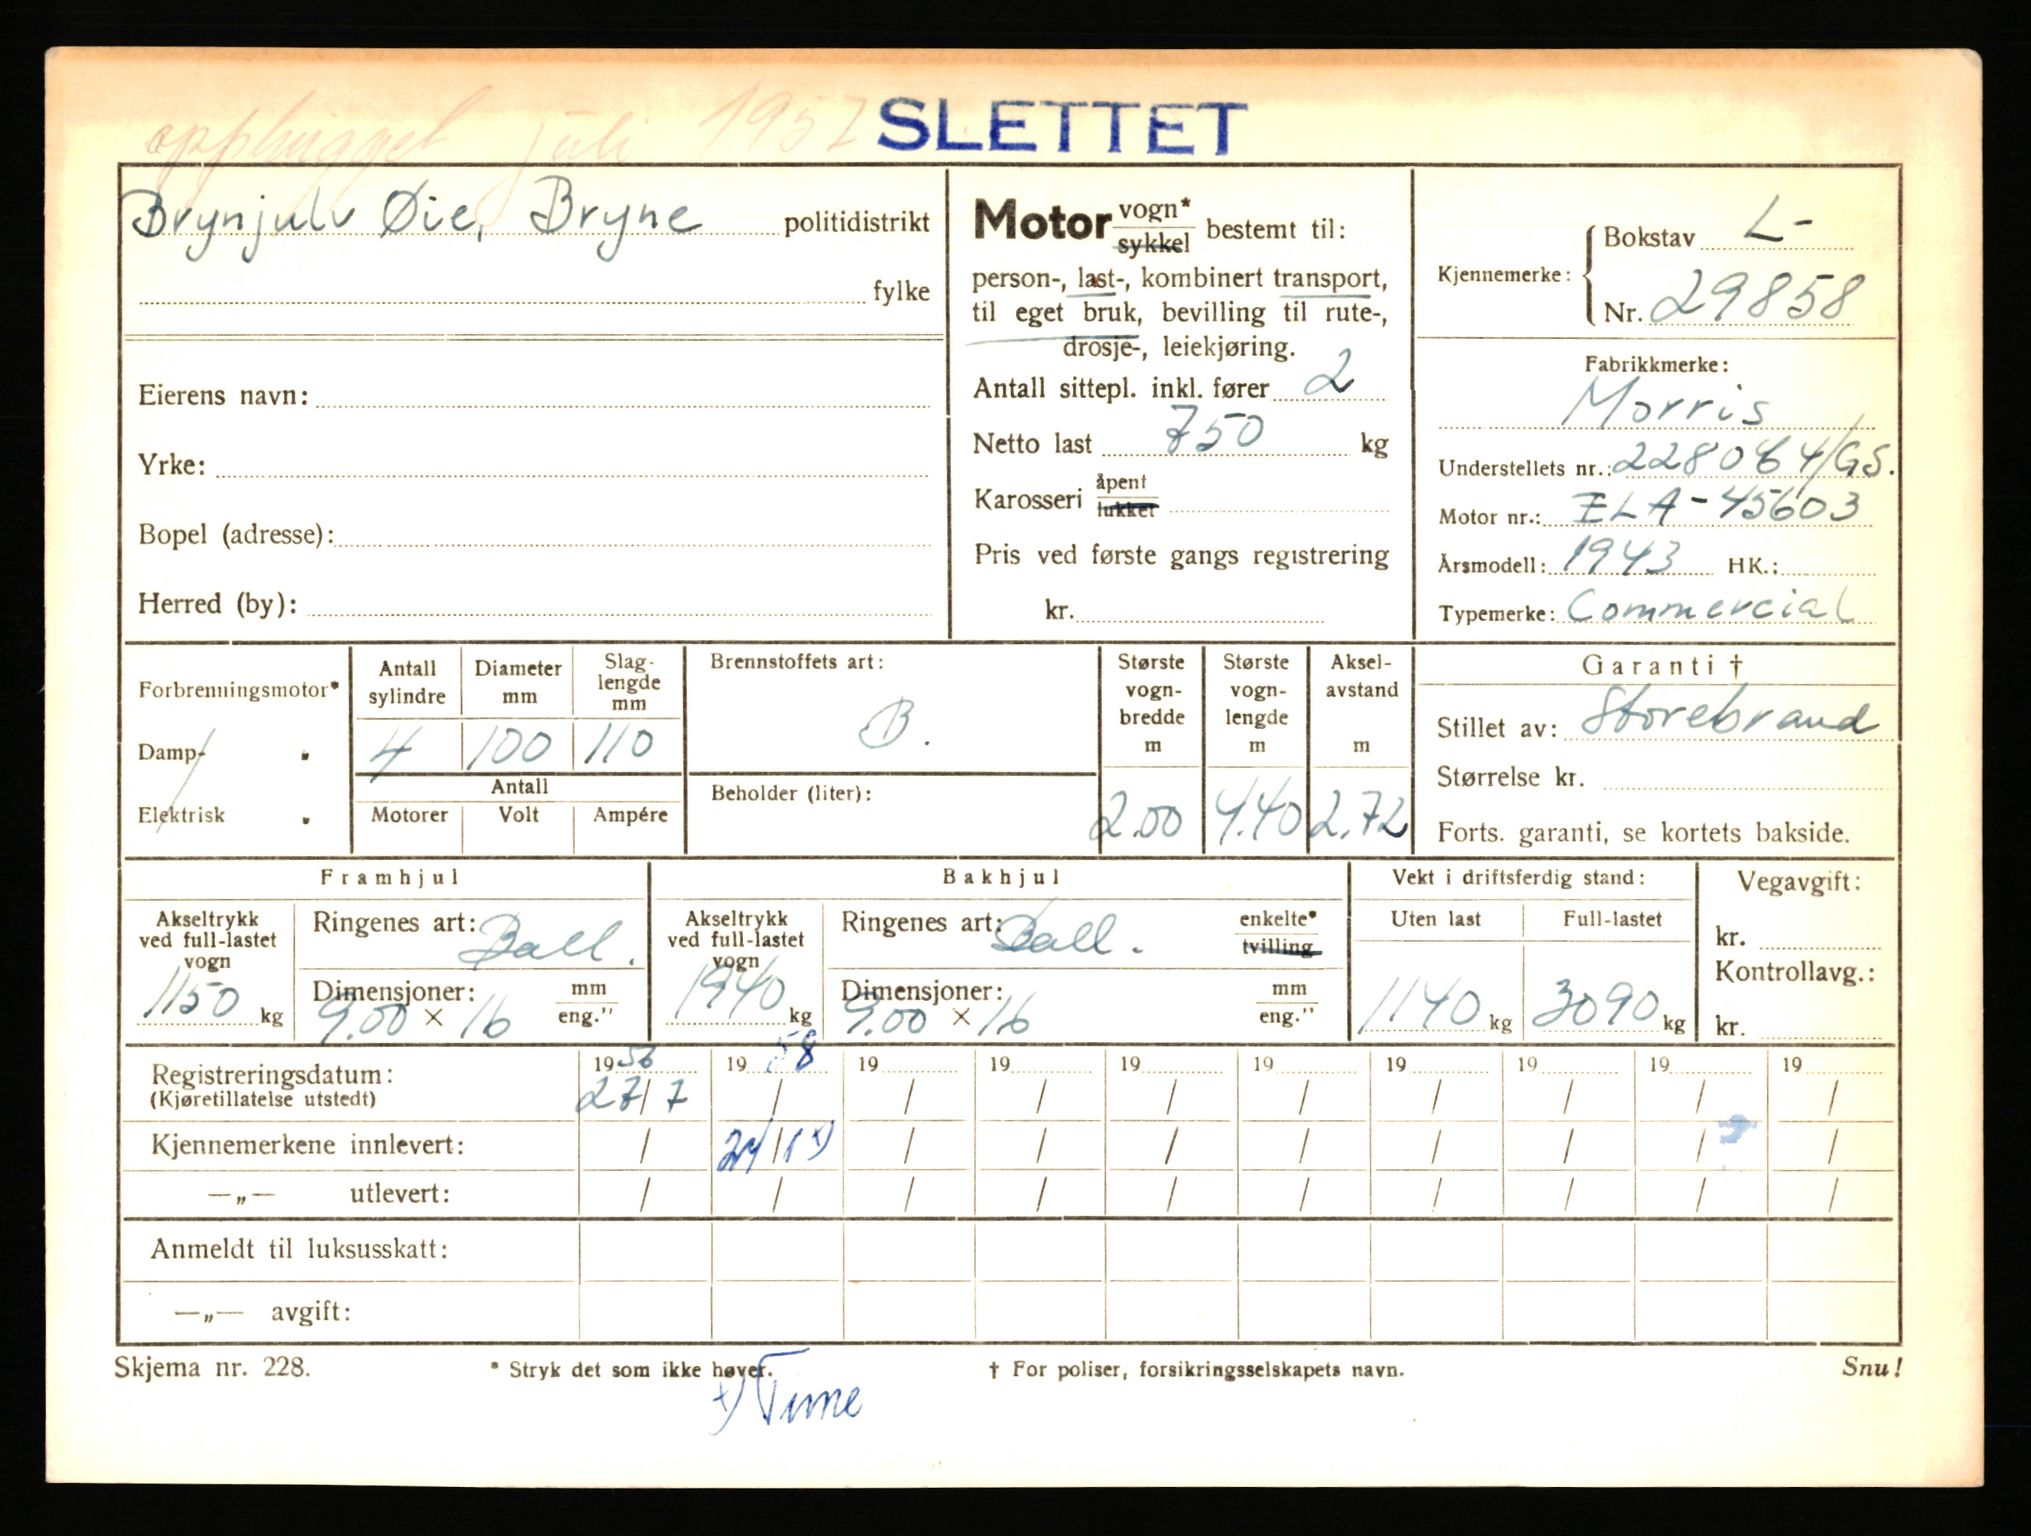 opphugget juli 1957 SLETTET
Brynjulv Øie, Bryne politidistrikt
fylke
Eierens navn:
Yrke:
Bopel (adresse):
Herred (by):
Motor vogn* sykkel bestemt til:
person-, last-, kombinert transport,
til eget bruk, bevilling til rute-,
drosje-, leiekjøring.
Antall sittepl. inkl. fører 2
Netto last 750 kg
Karosseri åpent lukket
Pris ved første gangs registrering
kr.
Kjennemerke: Bokstav L-
Nr. 29858
Fabrikkmerke:
Morris
Understellets nr.: 228064/GS.
Motor nr.: ELA-45603
Årsmodell: 1943 HK.:
Typemerke: Commercial
Forbrenningsmotor*
Damp- "
Elektrisk "
Antall sylindre Diameter mm Slag-lengde mm
4 100 110
Antall
Motorer Volt Ampére
Brennstoffets art:
B.
Beholder (liter):
Største vogn-bredde m Største vogn-lengde m Aksel-avstand m
2.00 4.40 2.72
Garanti †
Stillet av: Storebrand
Størrelse kr.
Forts. garanti, se kortets bakside.
Framhjul
Akseltrykk ved full-lastet vogn
1150 kg
Ringenes art: Ball.
Dimensjoner: mm eng."
9.00 × 16
Bakhjul
Akseltrykk ved full-lastet vogn
1940 kg
Ringenes art: Ball. enkelte* tvilling
Dimensjoner: mm eng."
9.00 × 16
Vekt i driftsferdig stand:
Uten last Full-lastet
1140 kg 3090 kg
Vegavgift:
kr.
Kontrollavg.:
kr.
Registreringsdatum: 1956 1958 19 19 19 19 19 19 19 19
(Kjøretillatelse utstedt) 27/7 / / / / / / / / /
Kjennemerkene innlevert: / 24/1 x) / / / / / / / /
—„— utlevert: / / / / / / / / / /
Anmeldt til luksusskatt:
—„— avgift:
Skjema nr. 228. * Stryk det som ikke høver. † For poliser, forsikringsselskapets navn. Snu!
x) Time